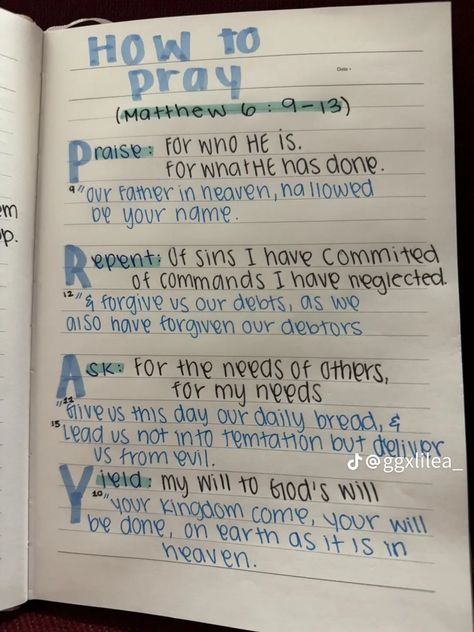 HOW to
Pray
Date •
(Matthew 6:9-13)
Praise: FOR WHO HE IS.
FOR WHAT HE HAS DONE.
9 "Our Father in heaven, hallowed
be your name.
em
p.
Repent: Of sins I have commited
of commands I have neglected.
12 "& forgive us our debts, as we
also have forgiven our debtors
Ask: For the needs of others,
for my needs
"11 Give us this day our daily bread, &
13 Lead us not into temtation but deliver
us from evil.
@ggxlilea_
Yield: my will to God's will
10 "your kingdom come, your will
be done, on earth as it is in
heaven.